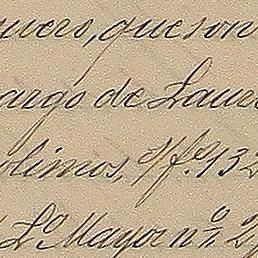 quero, que son
argo de Laure
olimos, #fs. 132
Lo. Mayor no. 2